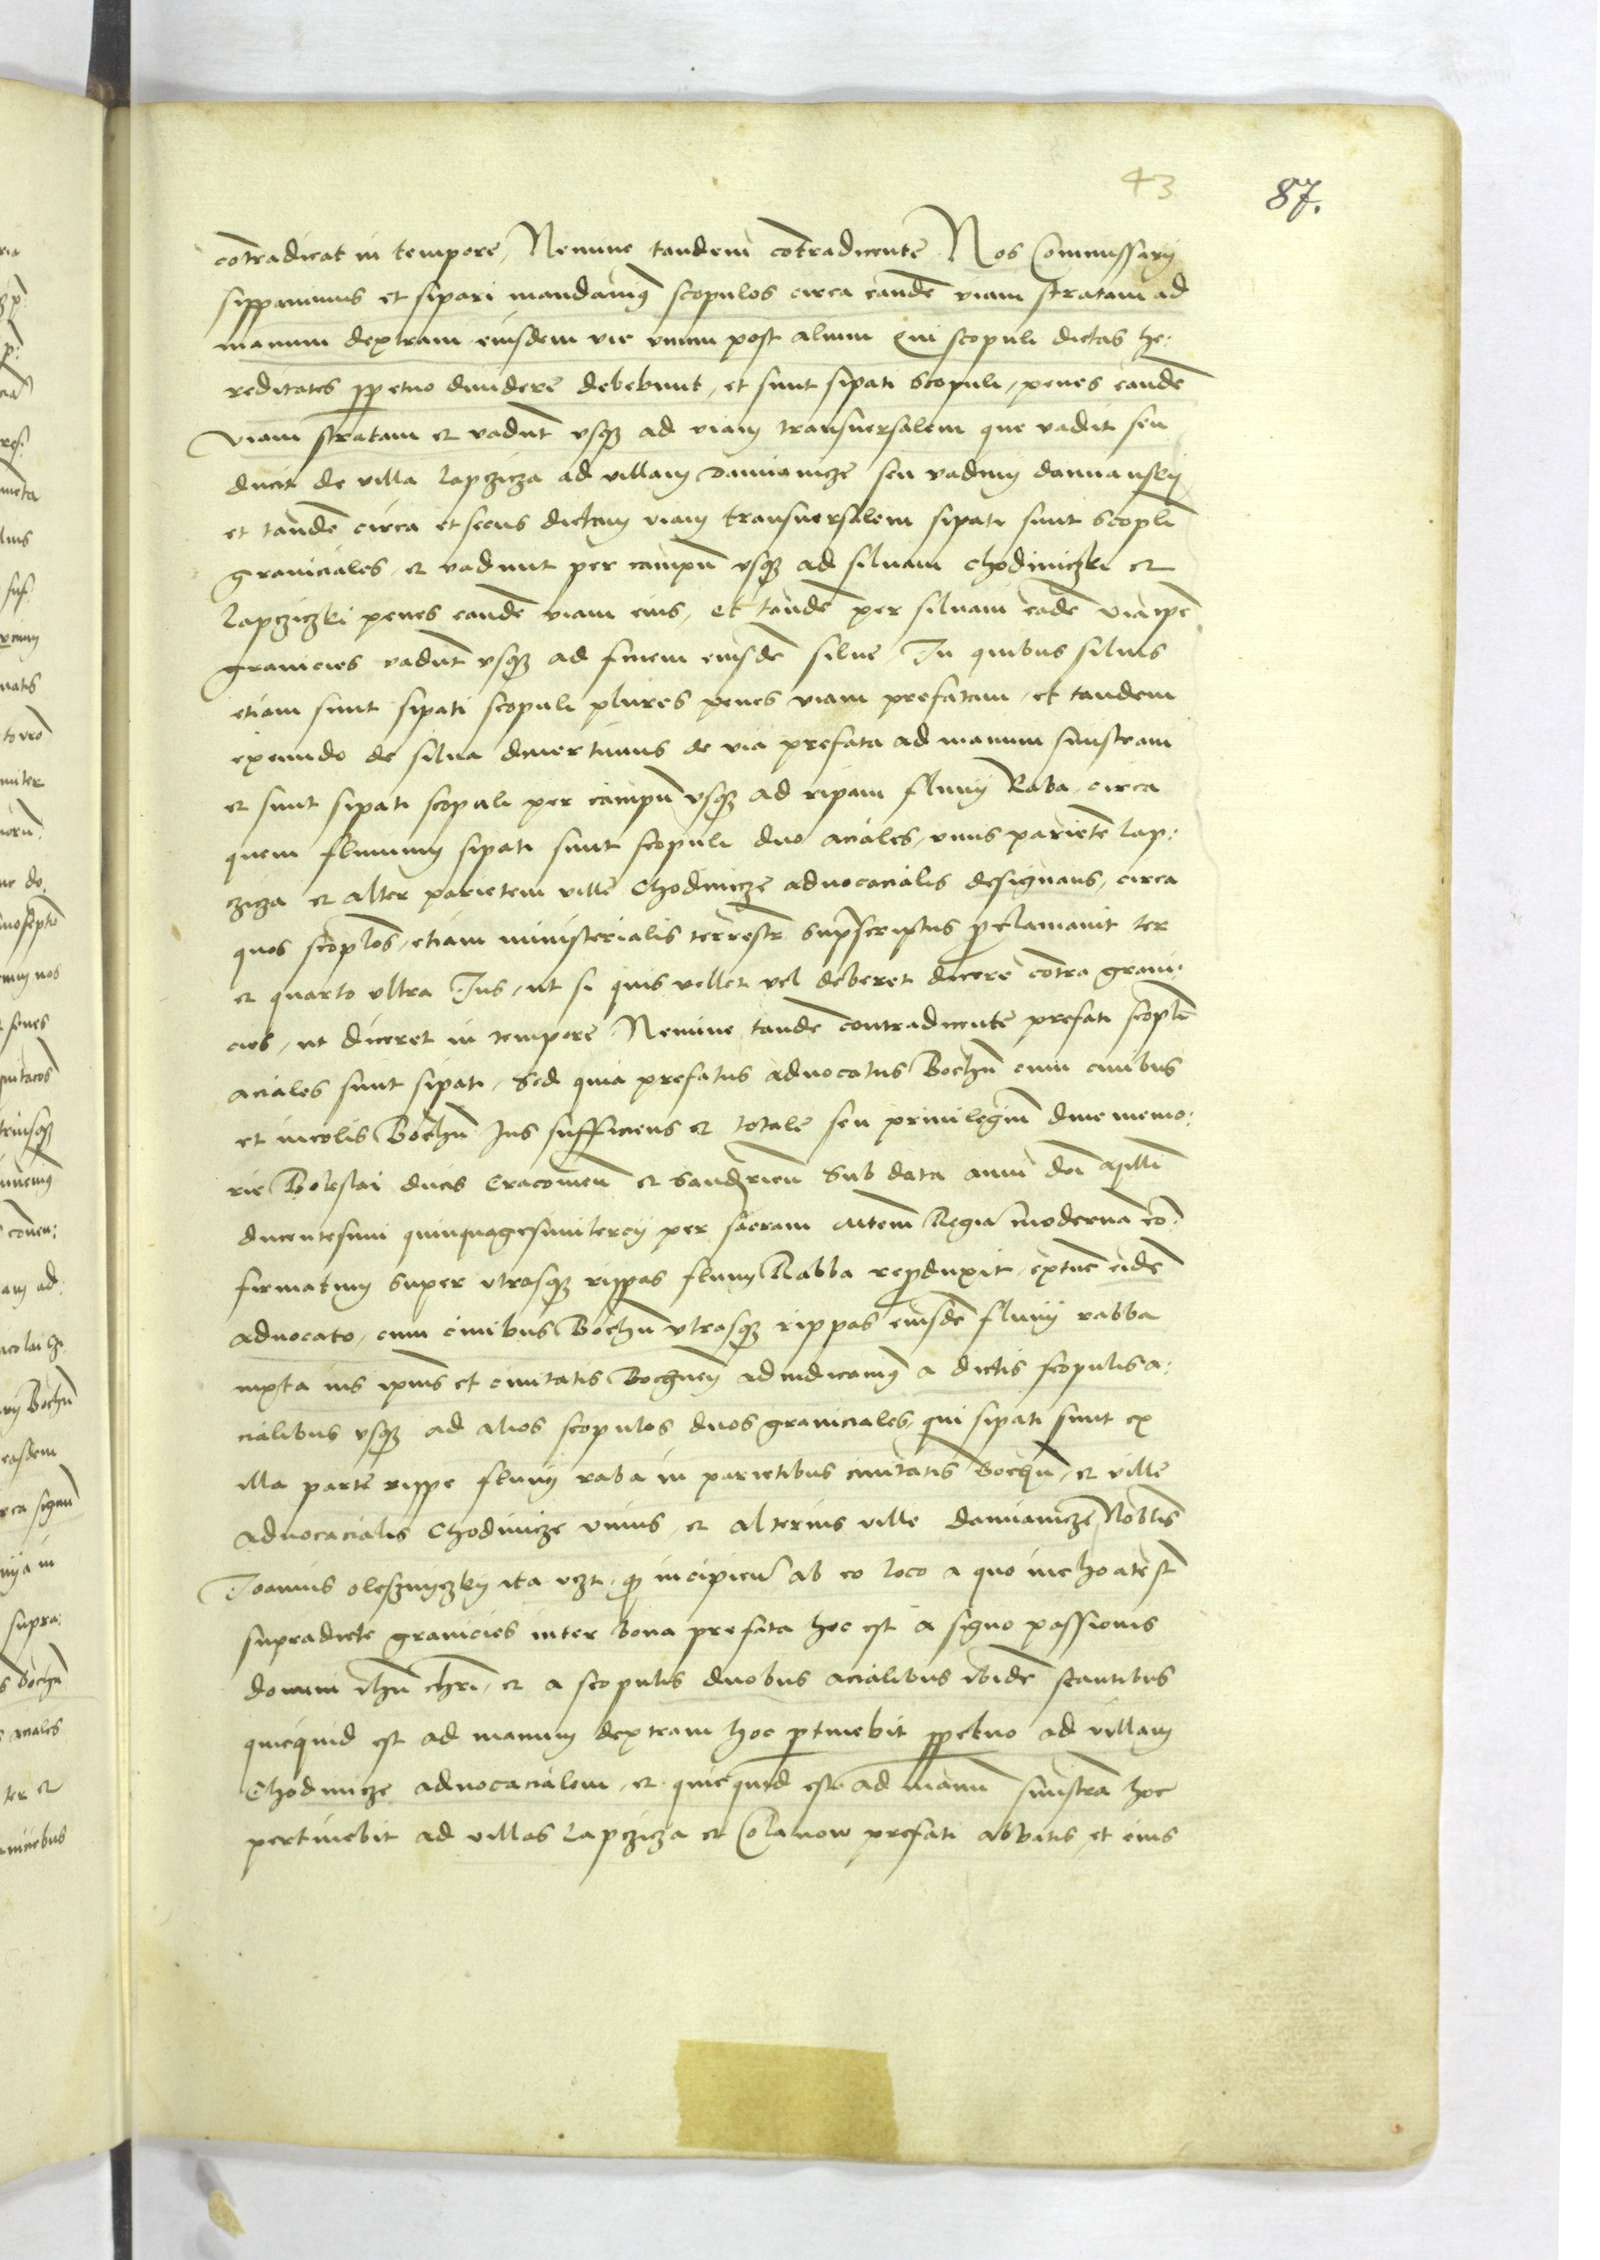 43 87.
cōtradicat in tempore, Nemine tandem cōtradicente Nos Commissarij
sippauimus et sipari mandauimꝰ scopulos circa eandē viam stratam ad
manum dextram eiusdem vie vnum post alium Qui scopuli dictas he:
reditates ꝑpetuo diuidere debebunt, et sunt sipati scopuli, penes eandē
viam stratam et vadūt vsqꝫ ad viam transuersalem que vadit seu
ducit de villa Lapczicza ad villam Damianicze seu vadum
et tandē circa et secus dictam viam transuersalem sipati sunt scopli
graniciales, et vadunt per campū vsqꝫ ad siluam Chodiniczki et
Lapcziczki penes eandē viam eius, et tandē per siluam eadē via ip̄e
granicies vadūt vsqꝫ ad finem eiusdē silue, In quibus siluis
etiam sunt sipati scopuli plures penes viam prefatam, et tandem
exeundo de silua diuertimus de via prefata ad manum sinistram
et sunt sipati scopuli per campū vsqꝫ ad ripam fluuij Raba, circa
quem fluuium sipati sunt scopuli duo aciales, vnus parietē Lap:
czicza et alter parietem ville Chodinicze aduocacialis designans, circa
quos scoplos, etiam ministerialis terrestr̄ supscriptus ꝓclamauit ter
et quarto vltra Ius, vt si quis vellet vel deberet dicere cōtra grani:
cies, vt diceret in tempore Nemine tandē contradicente prefati scopli
aciales sunt sipati, Sed quia prefatus aduocatus Bochn̄ cum ciuibus
et incolis Bochn̄ Ius sufficiens et totale seu priuilegiū diue memo:
rie Boleslai ducis Cracouien̄ et Sandomirien̄ Sub data anni dn̄i Milli
ducentesimi quinquagesimitercij per sacram Mtem Regiā modernā cō:
firmatum super vtrasqꝫ rippas fluuij Rabba reproduxit, extūc eidē
aduocato, cum ciuibus Bochn̄ vtrasqꝫ rippas eiusdē fluuij rabba
iuxta ius ipius et ciuitatis Bochnen̄ adiudicamꝰ a dictis scopulis a:
cialibus vsqꝫ ad alios scopulos duos graniciales, qui sipati sunt ex
illa parte rippe fluuij raba in parietibus ciuitatis Bochn̄, et ville
aduocacialis Chodinicze vnius, et alterius ville Damianicze Noblis
Ioannis Olesznyczky ita vczt, ꝙ incipiend̄ ab eo loco a quo inchoate st̄
supradicte granicies inter bona prefata hoc est a signo passionis
domini ihū chri, et a scopulis duobus acialibus ibidē stantibus
quicquid est ad manum dextram hoc ptinebit ꝑpetuo ad villam
Chodinicze aduocacialem, et quicquid est ad manū sinistrā hoc
pertinebit ad villas Lapczicza et Colanow prefati abbatis, et eius